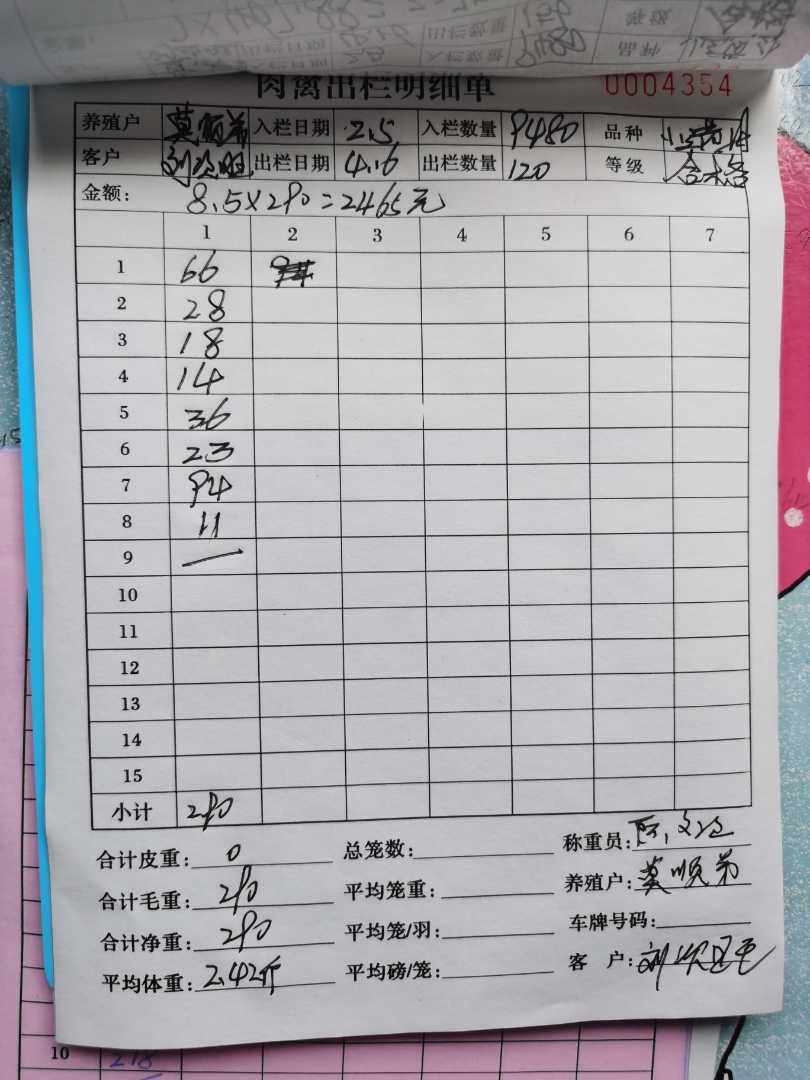 肉禽出栏明细单 0004354
养殖户 莫顺弟 入栏日期 2.5 入栏数量 9480 品种
客户 出栏日期 4.16 出栏数量 120 等级 合格
金额: 8.5×290=2465元
1 2 3 4 5 6 7
1 66
2 28
3 18
4 14
5 36
6 23
7 94
8 11
9 —
10
11
12
13
14
15
小计 290
合计皮重: 0 总笼数: 称重员:
合计毛重: 290 平均笼重: 养殖户: 莫顺弟
合计净重: 290 平均笼/羽: 车牌号码:
平均体重: 2.42斤 平均磅/笼: 客 户:
10 218